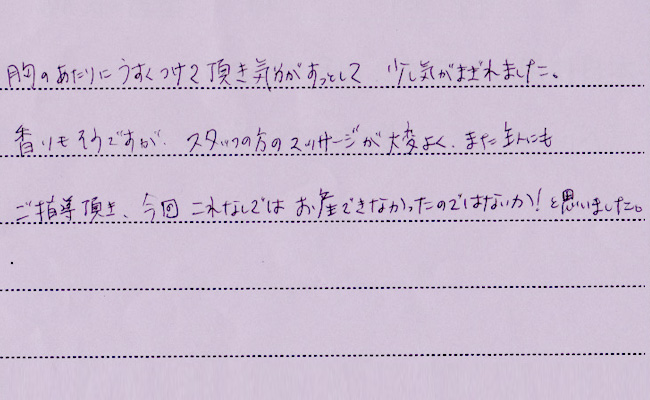 胸のあたりにうすくつけて頂き気分がすっとして 少し気がまぎれました。
香りもそうですが、スタッフの方のマッサージが大変よく、また主人にも
ご指導頂き、今回これなしではお産できなかったのではないか!と思いました。